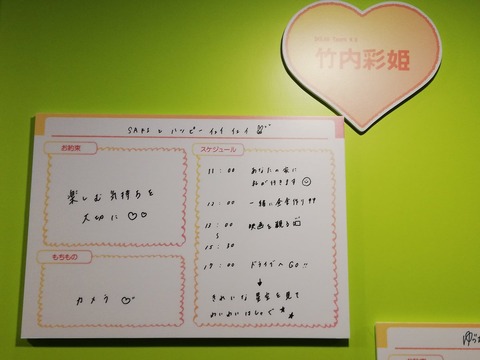 竹内彩姫
SAKIとハッピーイェイイェイ
お約束
楽しむ気持ちを
大切に♡♡
もちもの
カメラ♡
スケジュール
11:00 あなたの家に
私が行きます
12:00 一緒に昼食作り
13:00 映画を観る
15:30
19:00 ドライブへGO!!
きれいな星空を見て
わいわいはしゃぐ